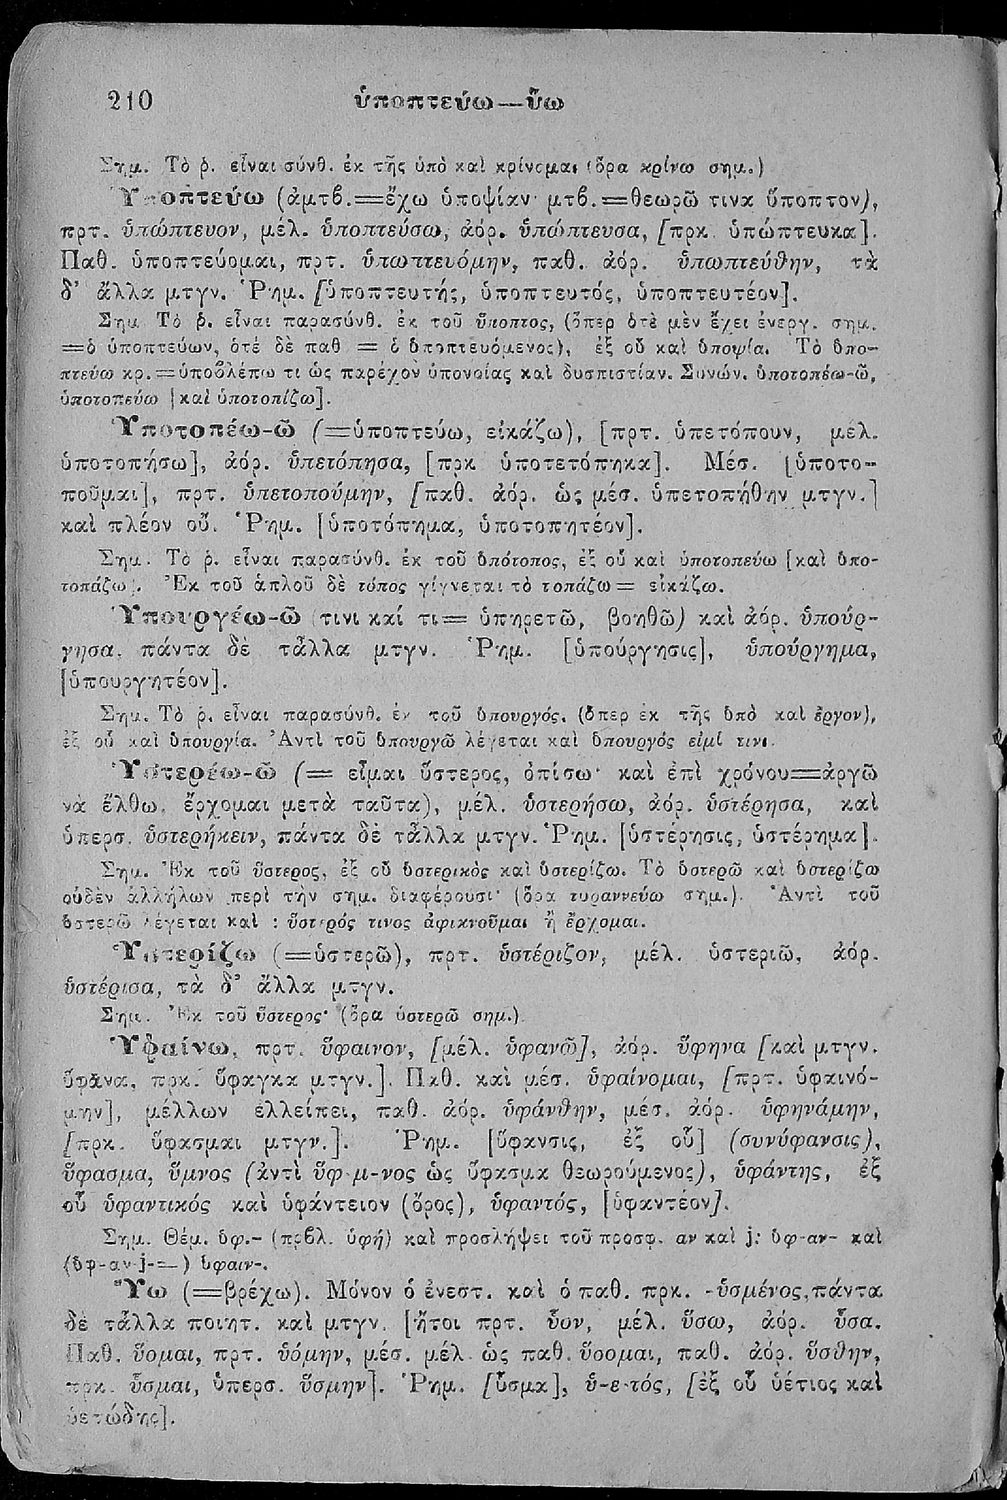 210 ὑποπτεύω—ὕω
Σημ. Τὸ ῥ. εἶναι σύνθ. ἐκ τῆς ὑπὸ καὶ κρίνομαι (ὅρα κρίνω σημ.)
Ὑποπτεύω (ἀμτβ.=ἔχω ὑποψίαν· μτβ.=θεωρῶ τινα ὕποπτον),
πρτ. ὑπώπτευον, μέλ. ὑποπτεύσω, ἀόρ. ὑπώπτευσα, [πρκ. ὑπώπτευκα].
Παθ. ὑποπτεύομαι, πρτ. ὑπωπτευόμην, παθ. ἀόρ. ὑπωπτεύθην, τὰ
δ' ἄλλα μτγν. Ῥημ. [ὑποπτευτής, ὑποπτευτός, ὑποπτευτέον].
Σημ. Τὸ ῥ. εἶναι παρασύνθ. ἐκ τοῦ ὕποπτος, (ὅπερ ὁτὲ μὲν ἔχει ἐνεργ. σημ.
=ὁ ὑποπτεύων, ὁτέ δὲ παθ = ὁ ὑποπτευόμενος), ἐξ οὗ καὶ ὑποψία. Τὸ ὑπο-
πτεύω κρ.=ὑποβλέπω τι ὡς παρέχον ὑπονοίας καὶ δυσπιστίαν. Συνών. ὑποτοπέω-ῶ,
ὑποτοπεύω [καὶ ὑποτοπίζω].
Ὑποτοπέω-ῶ (=ὑποπτεύω, εἰκάζω), [πρτ. ὑπετόπουν, μέλ.
ὑποτοπήσω], ἀόρ. ὑπετόπησα, [πρκ ὑποτετόπηκα]. Μέσ. [ὑποτο-
ποῦμαι], πρτ. ὑπετοπούμην, [παθ. ἀόρ. ὡς μέσ. ὑπετοπήθην μτγν.]
καὶ πλέον οὔ. Ῥημ. [ὑποτόπημα, ὑποτοπητέον].
Σημ. Τὸ ῥ. εἶναι παρασύνθ. ἐκ τοῦ ὑπότοπος, ἐξ οὗ καὶ ὑποτοπεύω [καὶ ὑπο-
τοπάζω]. Ἐκ τοῦ ἁπλοῦ δὲ τόπος γίγνεται τὸ τοπάζω= εἰκάζω.
Ὑπουργέω-ῶ (τινι καί τι= ὑπηρετῶ, βοηθῶ) καὶ ἀόρ. ὑπούρ-
γησα, πάντα δὲ τἆλλα μτγν. Ῥημ. [ὑπούργησις], ὑπούργημα,
[ὑπουργητέον].
Σημ. Τὸ ῥ. εἶναι παρασύνθ. ἐκ τοῦ ὑπουργός. (ὅπερ ἐκ τῆς ὑπὸ καὶ ἔργον),
ἐξ οὗ καὶ ὑπουργία. Ἀντὶ τοῦ ὑπουργῶ λέγεται καὶ ὑπουργός εἰμί τινι.
Ὑστερέω-ῶ (= εἶμαι ὕστερος, ὀπίσω· καὶ ἐπὶ χρόνου=ἀργῶ
νὰ ἔλθω, ἔρχομαι μετὰ ταῦτα), μέλ. ὑστερήσω, ἀόρ. ὑστέρησα, καὶ
ὑπερσ. ὑστερήκειν, πάντα δὲ τἆλλα μτγν. Ῥημ. [ὑστέρησις, ὑστέρημα].
Σημ. Ἐκ τοῦ ὕστερος, ἐξ οὗ ὑστερικὸς καὶ ὑστερίζω. Τὸ ὑστερῶ καὶ ὑστερίζω
οὐδὲν ἀλλήλων περὶ τὴν σημ. διαφέρουσι· (ὅρα τυραννεύω σημ.). Ἀντὶ τοῦ
ὑστερῶ λέγεται καὶ : ὕστερός τινος ἀφικνοῦμαι ἢ ἔρχομαι.
Ὑστερίζω (=ὑστερῶ), πρτ. ὑστέριζον, μέλ. ὑστεριῶ, ἀόρ.
ὑστέρισα, τὰ δ' ἄλλα μτγν.
Σημ. Ἐκ τοῦ ὕστερος· (ὅρα ὑστερῶ σημ.)
Ὑφαίνω, πρτ. ὕφαινον, [μέλ. ὑφανῶ], ἀόρ. ὕφηνα [καὶ μτγν.
ὕφανα, πρκ. ὕφαγκα μτγν.]. Παθ. καὶ μέσ. ὑφαίνομαι, [πρτ. ὑφαινό-
μην], μέλλων ἐλλείπει, παθ. ἀόρ. ὑφάνθην, μέσ. ἀόρ. ὑφηνάμην,
[πρκ. ὕφασμαι μτγν.]. Ῥημ. [ὕφανσις, ἐξ οὗ] (συνύφανσις),
ὕφασμα, ὕμνος (ἀντὶ ὕφ-μ-νος ὡς ὕφασμα θεωρούμενος), ὑφάντης, ἐξ
οὗ ὑφαντικός καὶ ὑφάντειον (ὄρος), ὑφαντός, [ὑφαντέον].
Σημ. Θέμ. ὑφ.- (πρβλ. ὑφή) καὶ προσλήψει τοῦ προσφ. αν καὶ j: ὑφ-αν- καὶ
(ὑφ-αν-j-=) ὑφαιν-.
Ὕω (=βρέχω). Μόνον ὁ ἐνεστ. καὶ ὁ παθ. πρκ. -ὑσμένος, πάντα
δὲ τἆλλα ποιητ. καὶ μτγν. [ἤτοι πρτ. ὗον, μέλ. ὕσω, ἀόρ. ὗσα.
Παθ. ὕομαι, πρτ. ὑόμην, μέσ. μέλ. ὡς παθ. ὕσομαι, παθ. ἀόρ. ὕσθην,
πρκ. ὗσμαι, ὑπερσ. ὕσμην]. Ῥημ. [ὗσμα], ὑ-ε-τός, [ἐξ οὗ ὑέτιος καὶ
ὑετώδης].